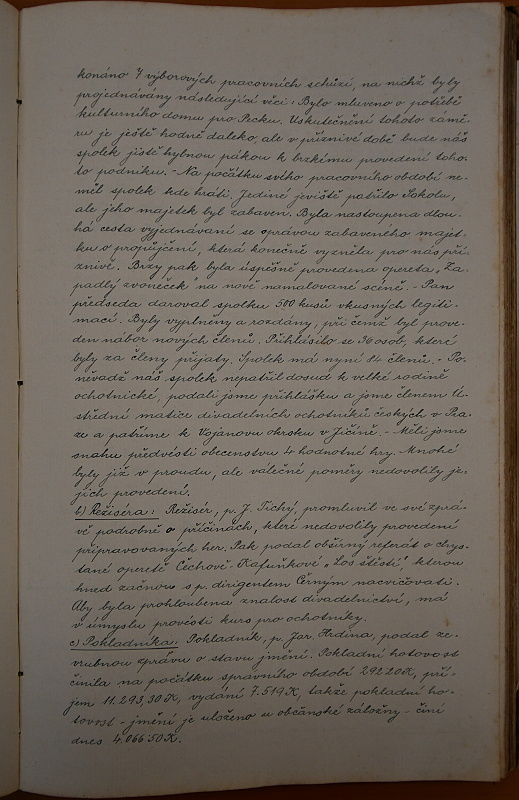 konáno 7 výborových pracovních schůzí, na nichž byly
projednávány následující věci: Bylo mluveno o potřebě
kulturního domu pro Pecku. Uskutečnění tohoto zámě-
ru je ještě hodně daleko, ale v příznivé době bude náš
spolek jistě hybnou pákou k brzkému provedení toho-
to podniku. - Na počátku svého pracovního období ne-
měl spolek kde hráti. Jediné jeviště patřilo Sokolu,
ale jeho majetek byl zabaven. Byla nastoupena dlou-
há cesta vyjednávání se správou zabaveného majet-
ku o propůjčení, která konečně vyzněla pro nás pří-
znivě. Brzy pak byla úspěšně provedena opereta „Za-
padlý zvoneček" na nově namalované scéně. - Pan
předseda daroval spolku 500 kusů vkusných legiti-
mací. Byly vyplněny a rozdány, při čemž byl prove-
den nábor nových členů. Přihlásilo se 36 osob, které
byly za členy přijaty. Spolek má nyní členů. - Po-
něvadž náš spolek nepatřil dosud k velké rodině
ochotnické, podali jsme přihlášku a jsme členem Ú-
střední matice divadelních ochotníků českých v Pra-
ze a patříme k Vojanovu okrsku v Jičíně. - Měli jsme
snahu předvésti obecenstvu 4 hodnotné hry. Mnohé
byly již v proudu, ale válečné poměry nedovolily je-
jich provedení.
b) Režiséra: Režisér, p. J. Tichý, promluvil ve své zprá-
vě podrobně o příčinách, které nedovolily provedení
připravovaných her. Pak podal obšírný referát o chys-
tané operetě Čechově - Kafuňkově „Los štěstí", kterou
hned začnou s p. dirigentem Černým nacvičovati.
Aby byla prohloubena znalost divadelnictví, má
v úmyslu provésti kurs pro ochotníky.
c) Pokladníka. Pokladník, p. Jar. Hrdina, podal ze-
vrubnou zprávu o stavu jmění. Pokladní hotovost
činila na počátku správního období 292.20 K, pří-
jem 11.293,30 K, vydání 7.519 K, takže pokladní ho-
tovost - jmění je uloženo u občanské záložny - činí
dnes 4.066 50 K.